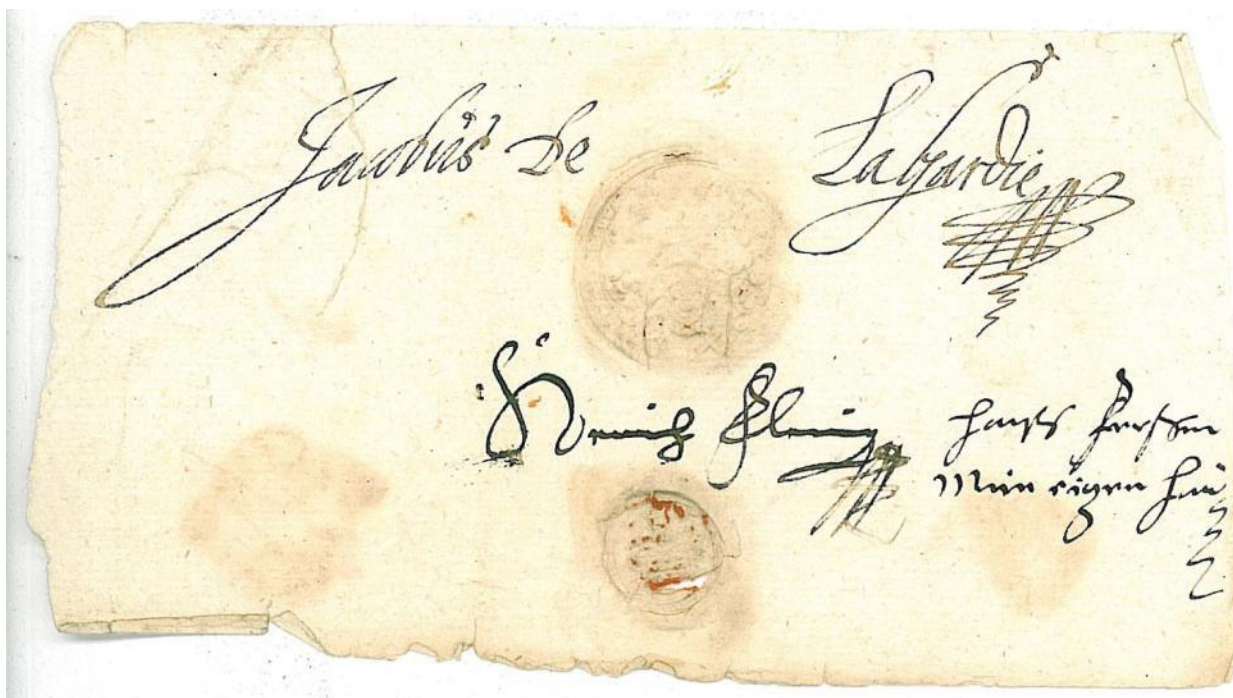 Jacobus De LaGardie
Henrich Fleming
Min eigen